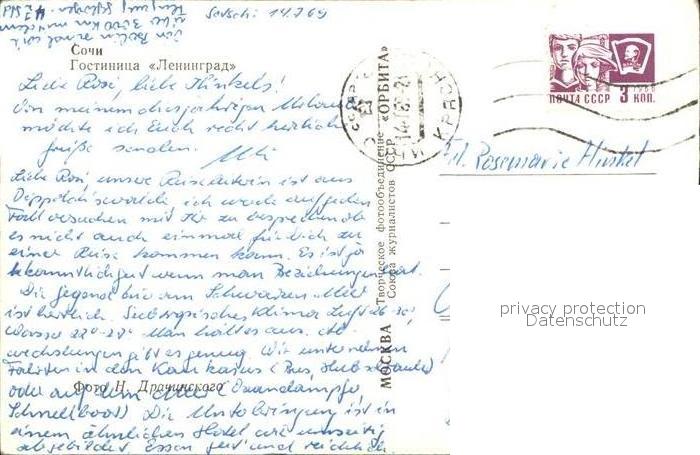 Sotschi 14.7.69
Сочи
Гостиница «Ленинград»
Liebe Rosi, liebe Hinkels!
Von meinem diesjährigen Urlaub
möchte ich Euch recht herzliche
Grüße senden.
Uli
Liebe Rosi, unsere Reiseleiterin ist aus
Dippoldiswalde ich werde auf jeden
Fall versuchen mit ihr zu besprechen ob
es nicht auch einmal für Dich zu
einer Reise kommen kann. Es ist ja
bekanntlich gut wenn man Beziehungen hat.
Die Gegend hier am Schwarzen Meer
ist herrlich. Subtropisches Klima Luft 26-30°
Wasser 22°-27° Man hält es aus. Ab
wechslungen gibt es genug. Wir unternehmen
Fahrten in den Kaukasus (Bus, Hubschrauber)
oder auf dem Meer (Ozeandampfer
Schnellboot) Die Unterbringung ist in
einem ähnlichen Hotel wie umseitig
abgebildet. Essen gut und reichlich.
Фото Н. Драчинского
МОСКВА Творческое фотообъединение «ОРБИТА»
Союза журналистов СССР
ПОЧТА СССР 3 КОП.
1966
Frl. Rosemarie Hinkel
privacy protection
Datenschutz